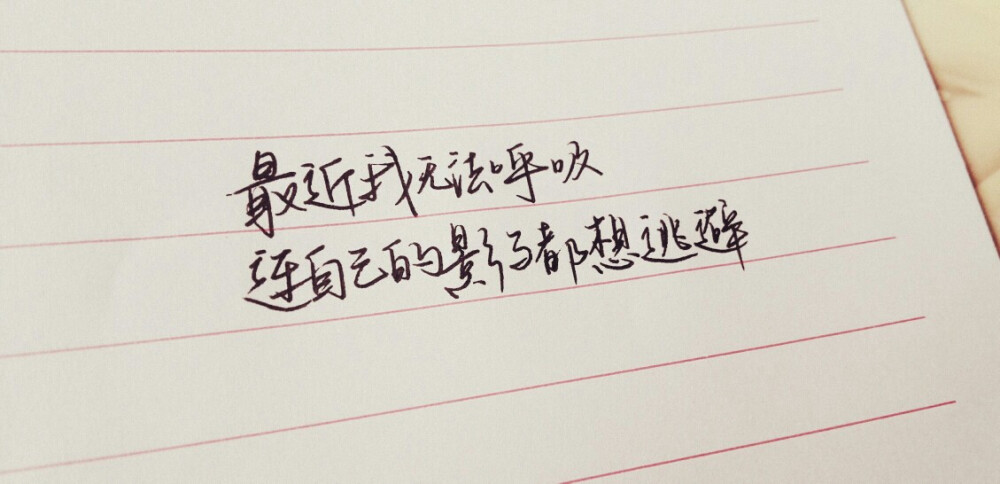 最近我无法呼吸
连自己的影子都想逃避